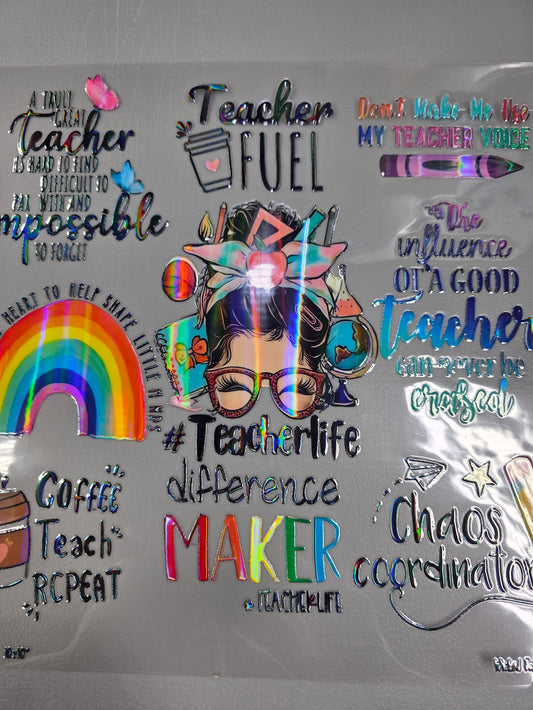 A TRULY
GREAT
teacher
IS HARD TO FIND
DIFFICULT TO
PART WITH AND
mpossible
TO FORGET
Teacher
FUEL
Don't Make Me Use
MY TEACHER VOICE
"The
influence
OF A GOOD
teacher
can never be
erased
HEART TO HELP SHAPE LITTLE MINDS
#Teacherlife
difference
MAKER
#TEACHERLIFE
COFFEE
Teach
REPEAT
Chaos
coordinator